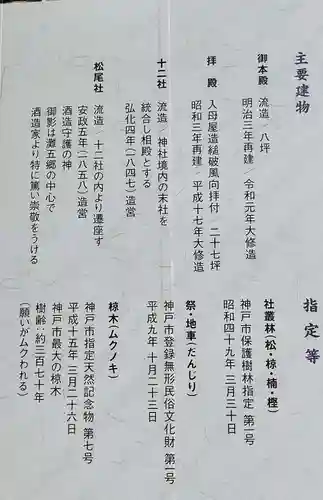 主要建物
御本殿 流造 八坪
明治三年再建 令和元年大修造
拝殿 入母屋造縋破風向拝付 二十七坪
昭和三年再建 平成十七年大修造
十二社 流造 神社境内の末社を
統合し相殿とする
弘化四年(一八四七)造営
松尾社 流造 十二社の内より遷座す
安政五年(一八五八)造営
酒造守護の神
御影は灘五郷の中心で
酒造家より特に篤い崇敬をうける
指定等
社叢林(松・椋・楠・樫)
神戸市保護樹林指定 第一号
昭和四十九年 三月三十日
祭・地車(だんじり)
神戸市登録無形民俗文化財 第一号
平成九年 十月二十三日
椋木(ムクノキ)
神戸市指定天然記念物 第七号
平成十五年 三月二十六日
神戸市最大の椋木
樹齢:約三百七十年
(願いがムクわれる)